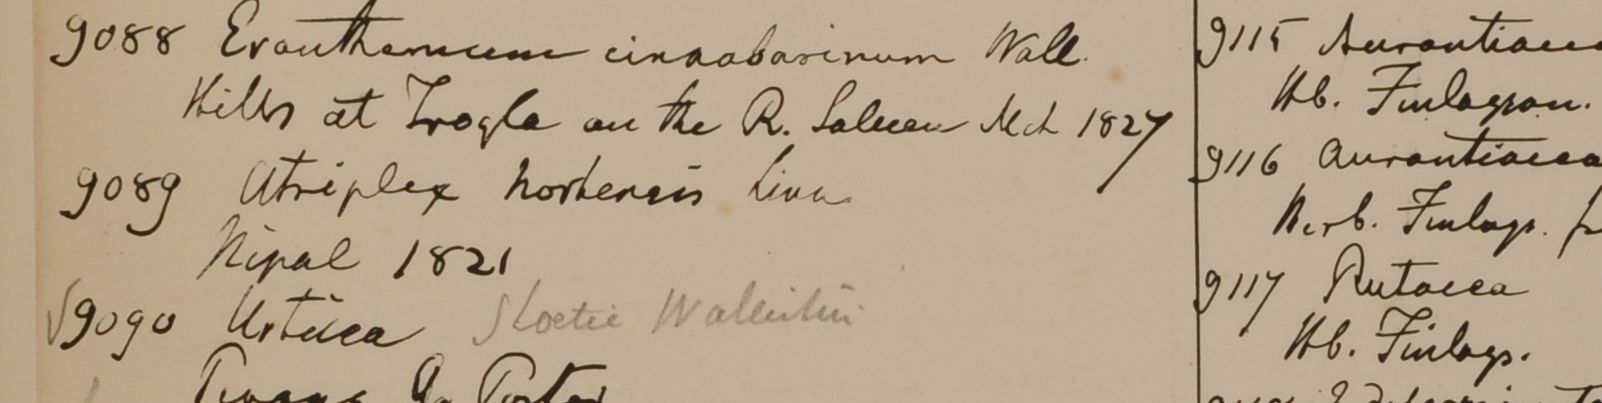 9088 Eranthemum cinnabarinum Wall.
Hills at Trogla on the R. Saluen Mch 1827
9089 Atriplex hortensis Linn
Nipal 1821
√9090 Urticea Sloetia Wallichii
Porter
9115 Aurantiacea
Hb. Finlayson.
9116 Aurantiacea
Herb. Finlays.
9117 Rutacea
Hb. Finlays.